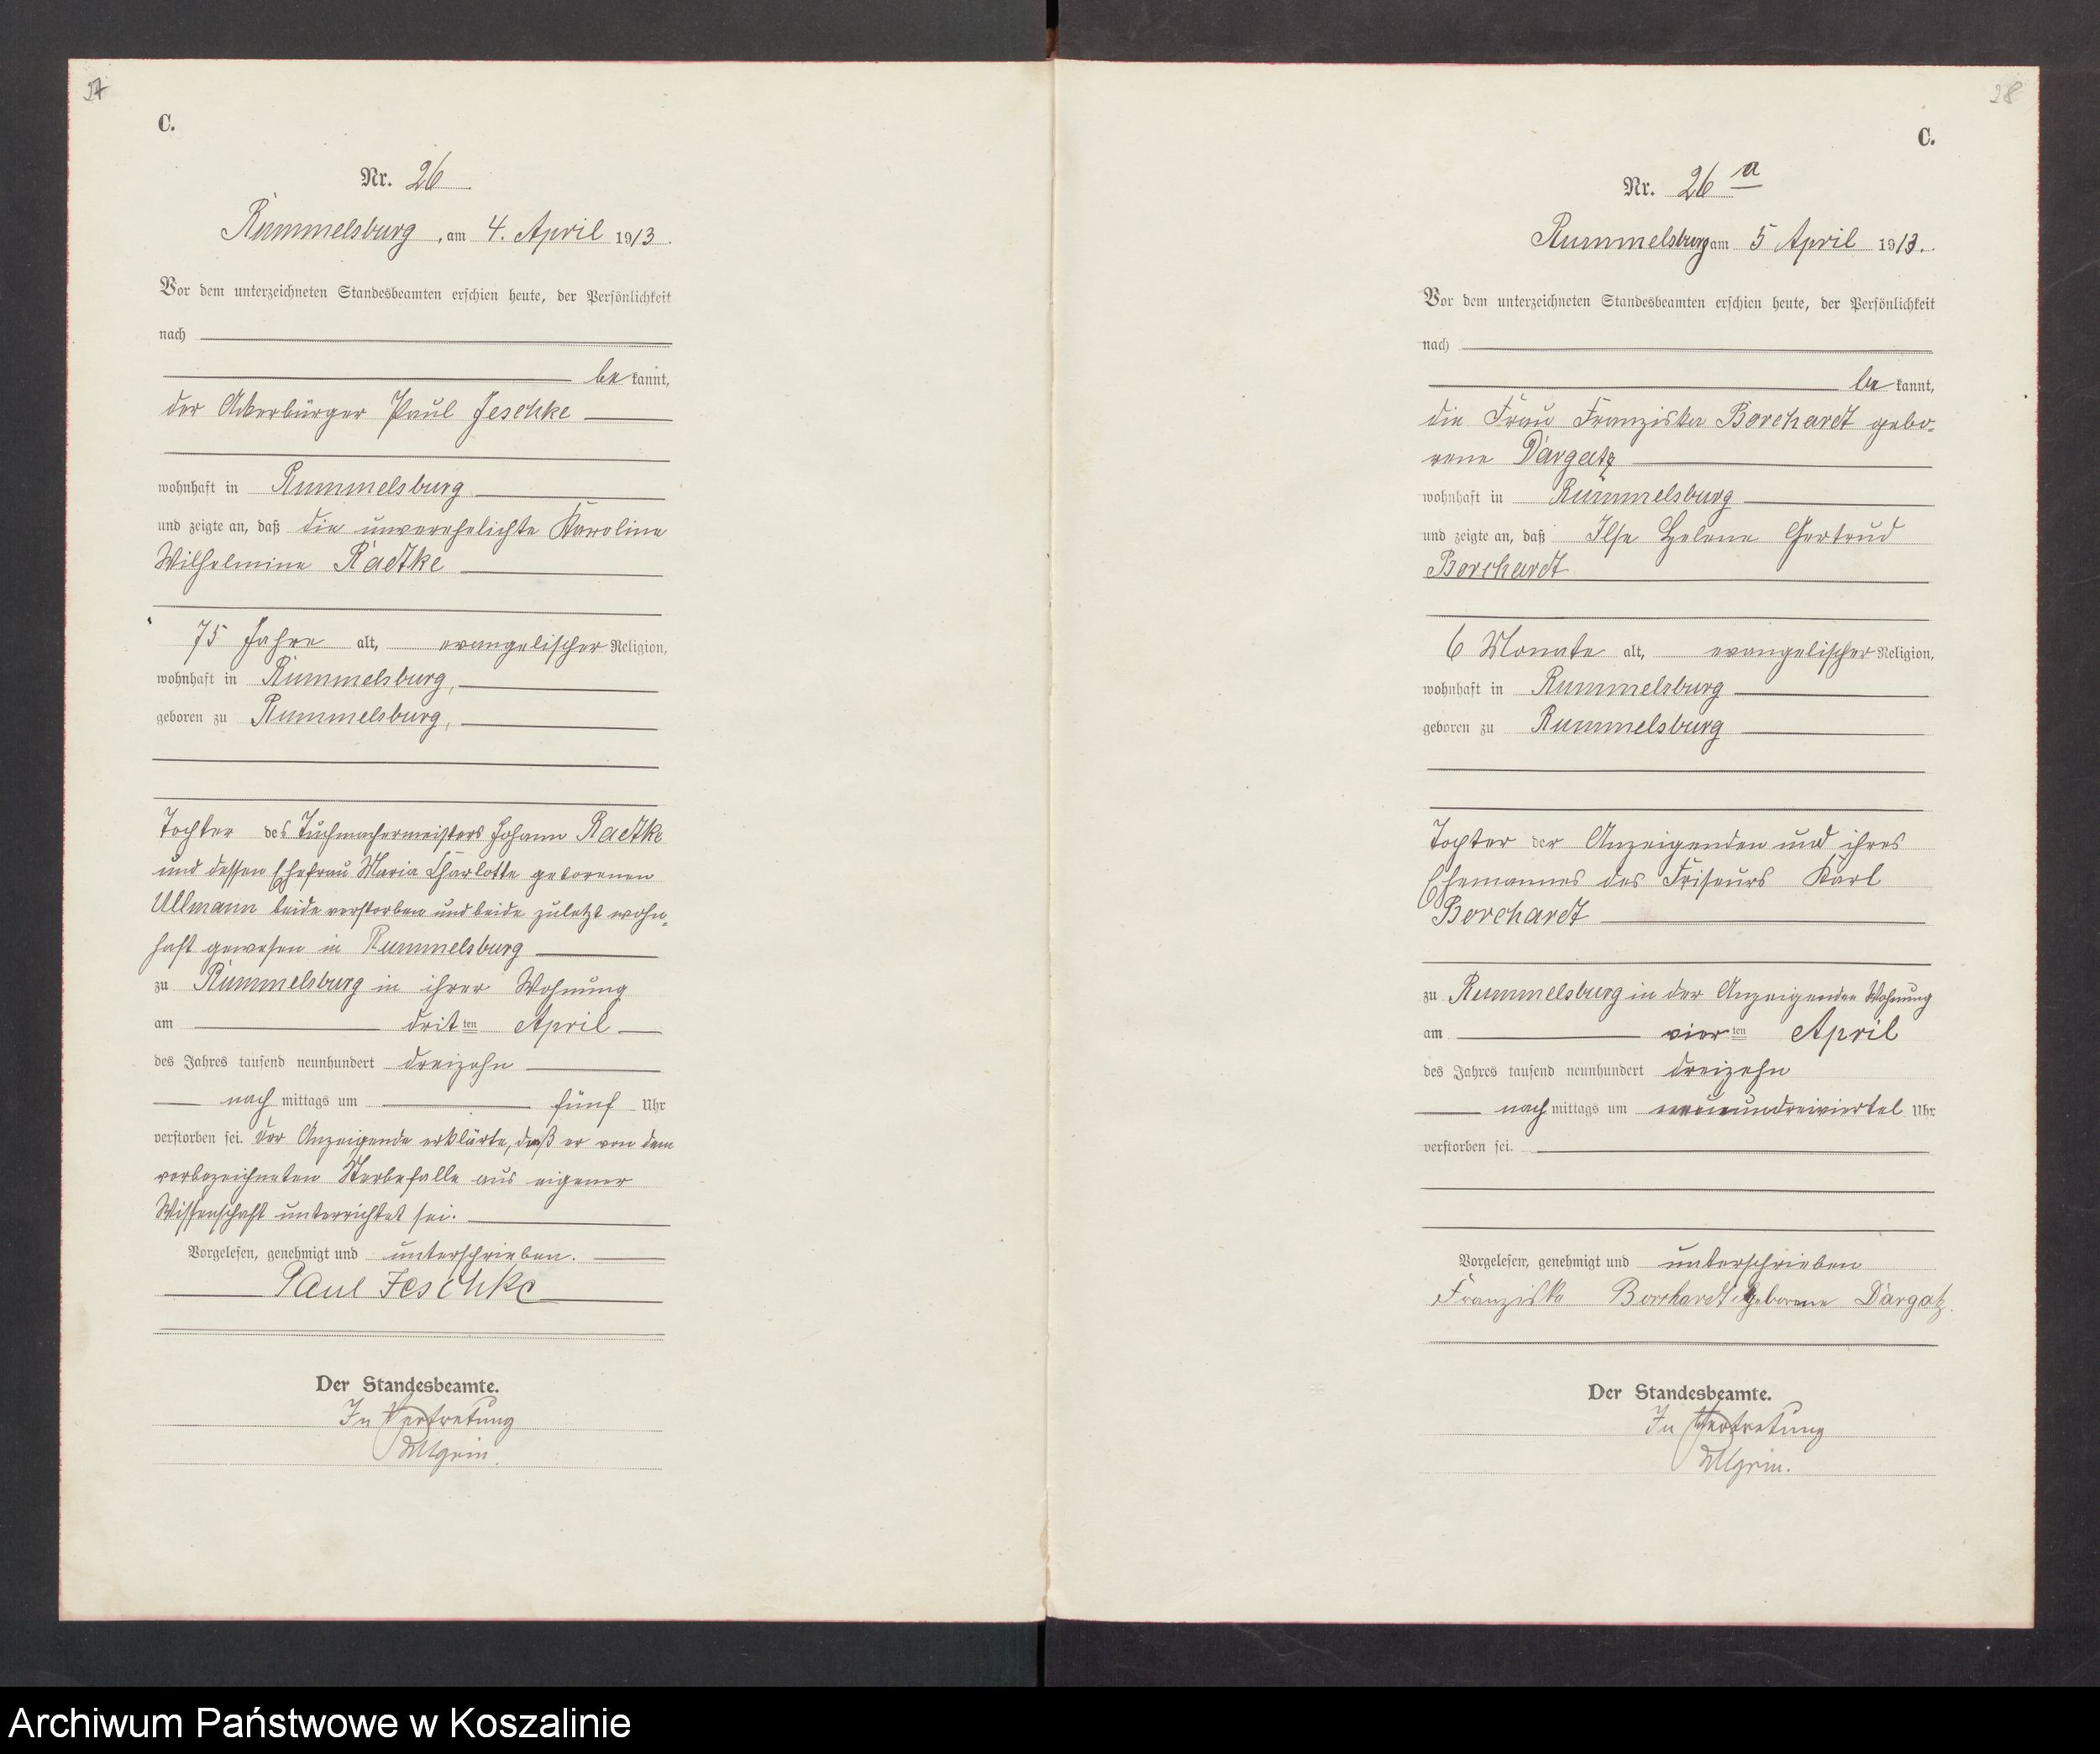 27
C.
Nr. 26
Rummelsburg, am 4. April 1913.
Vor dem unterzeichneten Standesbeamten erschien heute, der Persönlichkeit
nach
be kannt,
der Ackerbürger Paul Jeschke
wohnhaft in Rummelsburg
und zeigte an, daß die unverehelichte Karoline
Wilhelmine Radtke
75 Jahre alt, evangelischer Religion,
wohnhaft in Rummelsburg,
geboren zu Rummelsburg,
Tochter des Tuchmachermeisters Johann Radtke
und dessen Ehefrau Maria Charlotte geborenen
Ullmann beide verstorben und beide zuletzt wohn-
haft gewesen in Rummelsburg
zu Rummelsburg in ihrer Wohnung
am dritten April
des Jahres tausend neunhundert dreizehn
nach mittags um fünf Uhr
verstorben sei. Der Anzeigende erklärte, daß er von dem
vorbezeichneten Sterbefalle aus eigener
Wissenschaft unterrichtet sei.
Vorgelesen, genehmigt und unterschrieben.
Paul Jeschke
Der Standesbeamte.
In Vertretung
28
C.
Nr. 26 a
Rummelsburg am 5 April 1913.
Vor dem unterzeichneten Standesbeamten erschien heute, der Persönlichkeit
nach
be kannt,
die Frau Franziska Borchardt gebo-
rene Dargatz
wohnhaft in Rummelsburg
und zeigte an, daß Ilse Helene Gertrud
Borchardt
6 Monate alt, evangelischer Religion,
wohnhaft in Rummelsburg
geboren zu Rummelsburg
Tochter der Anzeigenden und ihres
Ehemannes des Friseurs Karl
Borchardt
zu Rummelsburg in der Anzeigenden Wohnung
am vierten April
des Jahres tausend neunhundert dreizehn
nach mittags um neunundreiviertel Uhr
verstorben sei.
Vorgelesen, genehmigt und unterschrieben
Franziska Borchardt geborene Dargatz.
Der Standesbeamte.
In Vertretung
Archiwum Państwowe w Koszalinie